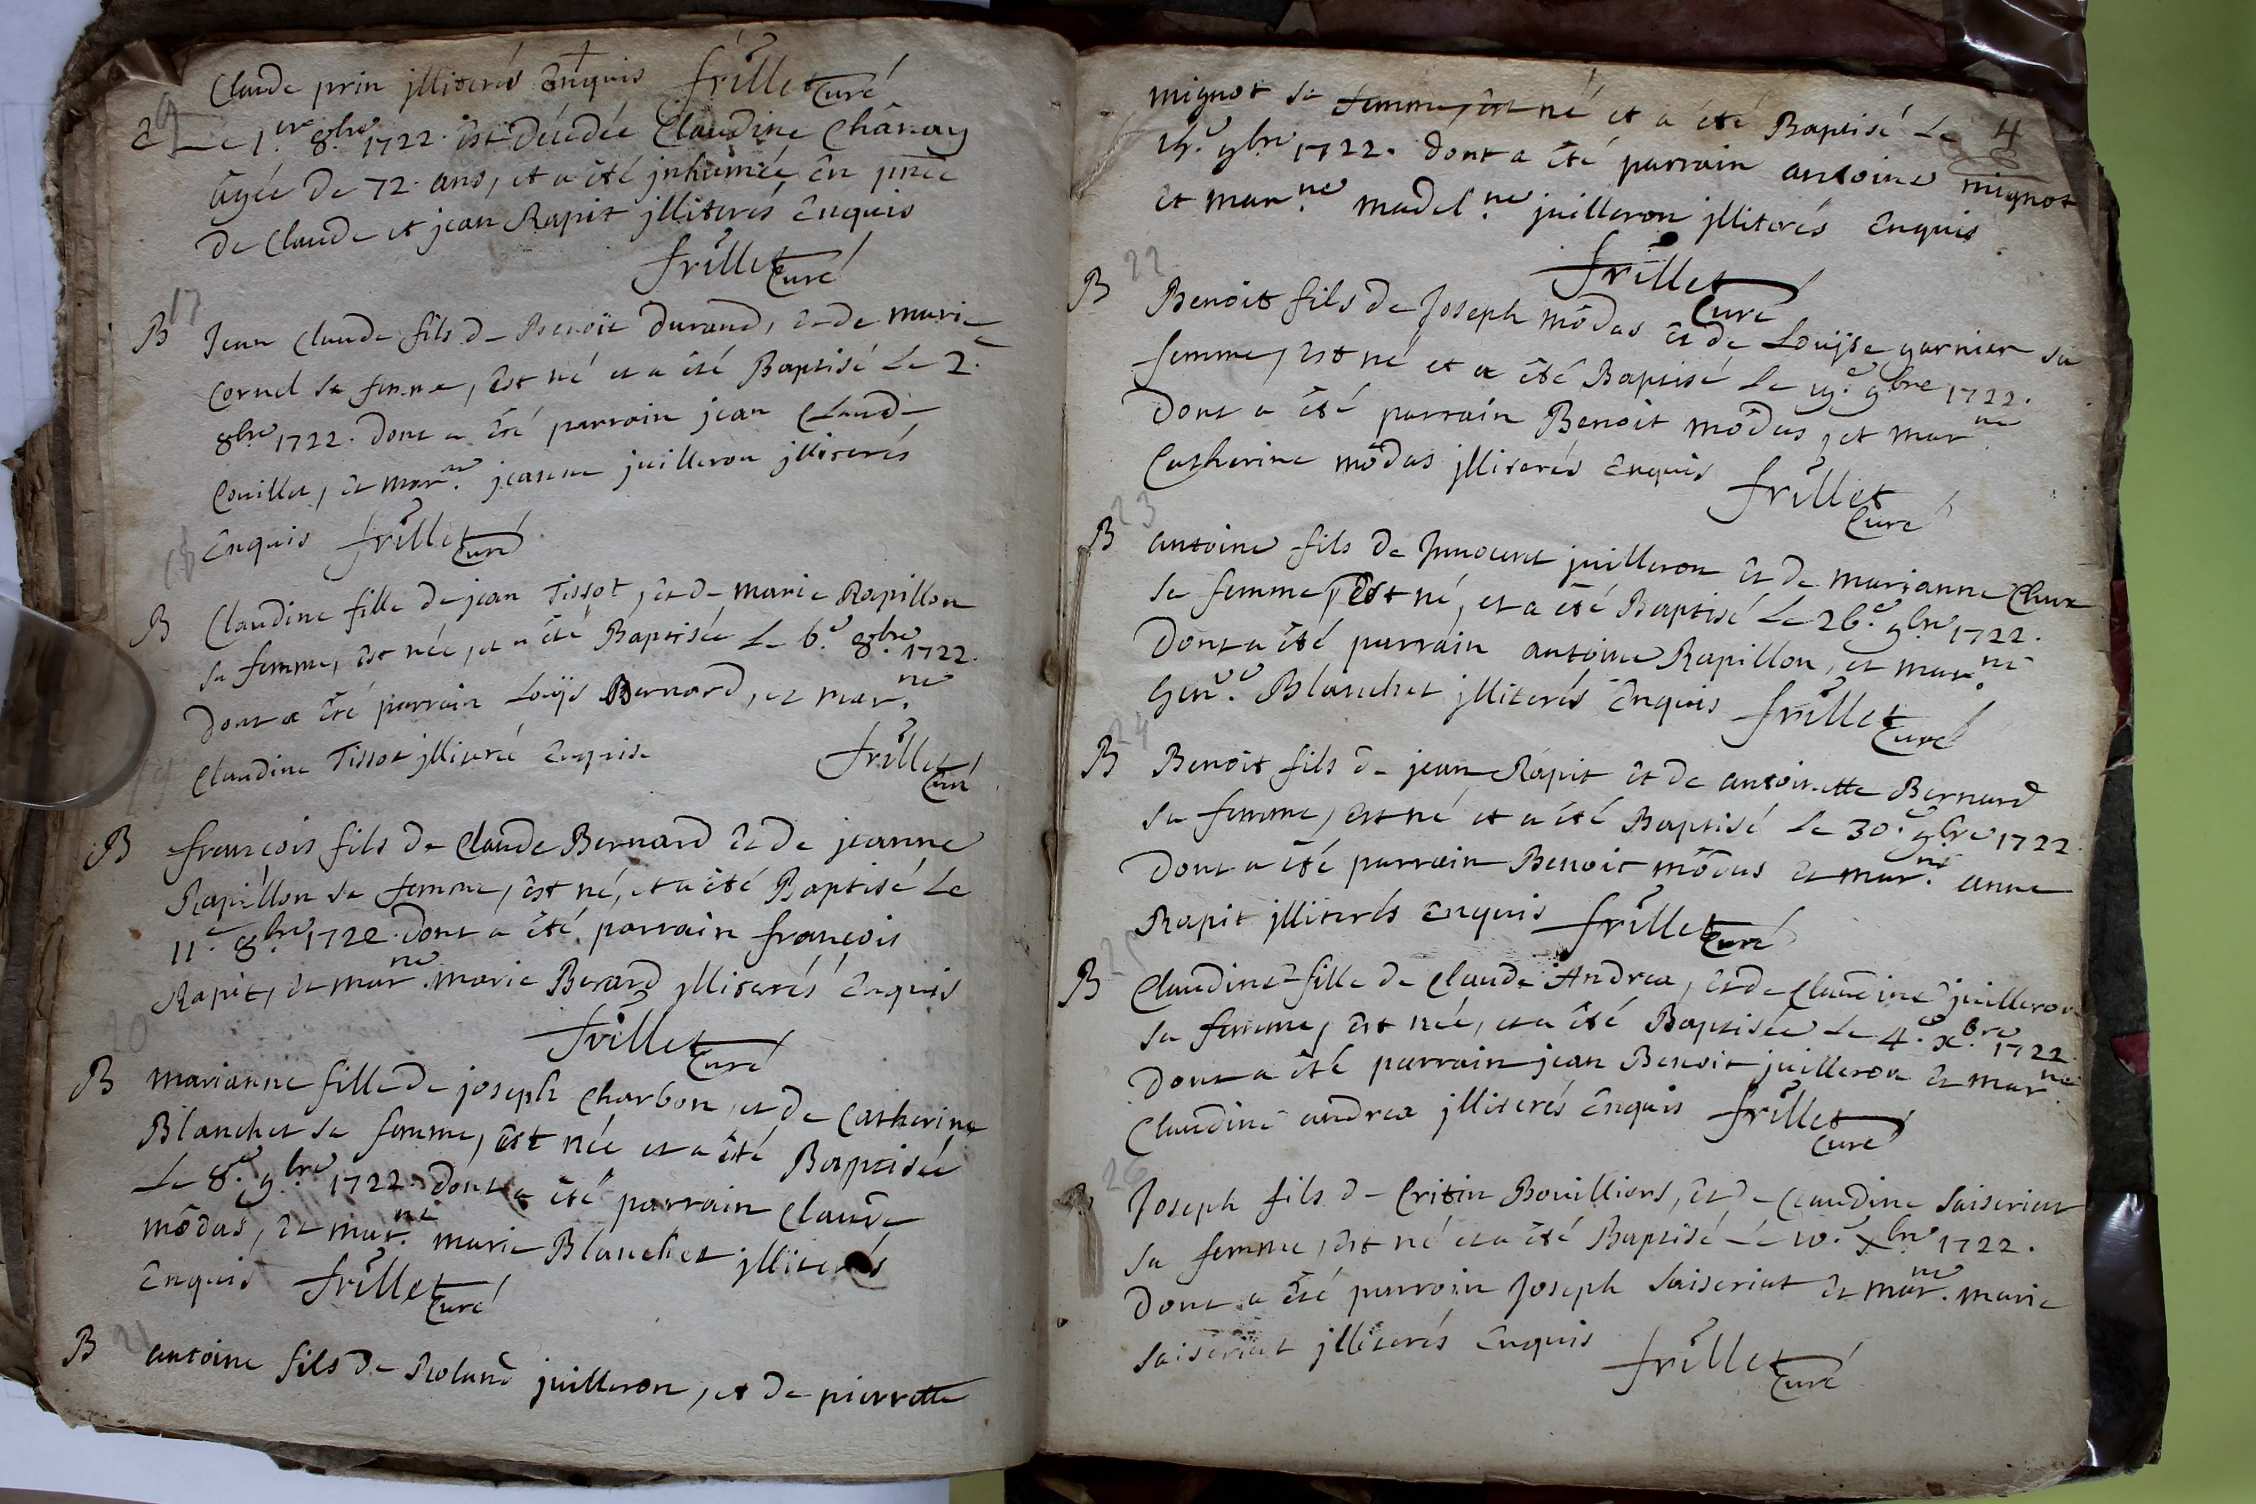 Claude prin jlliterés Enquis frillet Curé
9
Le 1.er 8.bre 1722. est décédée Claudine Chânay
âgée de 72. ans, et a été jnhumée En pnce
de Claude et jean Rapit jlliterés Enquis
frillet Curé
17
B Jean Claude fils de Benoit durand, et de marie
Cornel sa femme, est né et a été Baptisé Le 2.e
8bre 1722. dont a été parrain jean Claude
Couillet, et mar.ne jeanne juilleron jlliterés
Enquis frillet Curé
18
B Claudine fille de jean Tissot, et de marie Rapillon
sa femme, est née, et a été Baptisée Le 6.e 8.bre 1722.
dont a été parrain Loüjs Bernard, et mar.ne
Claudine Tissot jlliteré Enquise frillet Curé
19
B françois fils de Claude Bernard et de jeanne
Rapillon sa femme, est né, et a été Baptisé Le
11.e 8.bre 1722. dont a été parrain françois
Rapit, et mar.ne marie Berard jlliterés Enquis
frillet Curé
20
B marianne fille de joseph Charbon, et de Catherine
Blanchet sa femme, est née et a été Baptisée
Le 8.e 9.bre 1722. dont a été parrain Claude
môdas, et mar.ne marie Blanchet jlliterés
Enquis frillet Curé
21
B antoine fils de Roland juilleron, et de pierrette
mignot sa femme, est né et a été Baptisé Le
4
15.e 9bre 1722. dont a été parrain antoine mignot
et mar.ne madel.ne juilleron jlliterés Enquis
frillet Curé
22
B Benoit fils de Joseph môdas et de Loujse garnier sa
femme, est né et a été Baptisé le 19.e 9bre 1722.
dont a été parrain Benoit môdas, et mar.ne
Catherine môdas jlliterés Enquis frillet Curé
23
B antoine fils de Jnnocent juilleron et de marianne
sa femme, Est né, et a été Baptisé Le 26.e 9bre 1722.
dont a été parrain antoine Rapillon, et mar.ne
Gen.e Blanchet jlliterés Enquis frillet Curé
24
B Benoit fils de jean Rapit et de antoinette Bernard
sa femme, est né et a été Baptisé Le 30.e 9bre 1722.
dont a été parrain Benoit môdas et mar.ne anne
Rapit jlliterés Enquis frillet Curé
25
B Claudine fille de Claude Andrea, et de Claudine juilleron
sa femme, est née, et a été Baptisée Le 4.e x.bre 1722.
dont a été parrain jean Benoit juilleron et mar.ne
Claudine andrea jlliterés Enquis frillet Curé
26
B Joseph fils de Critin Bouilliers, et de Claudine Saiseriat
sa femme, est né et a été Baptisé Le 10.e xbre 1722.
dont a été parrain Joseph Saiseriat et mar.ne marie
Saiseriat jlliterés Enquis frillet Curé